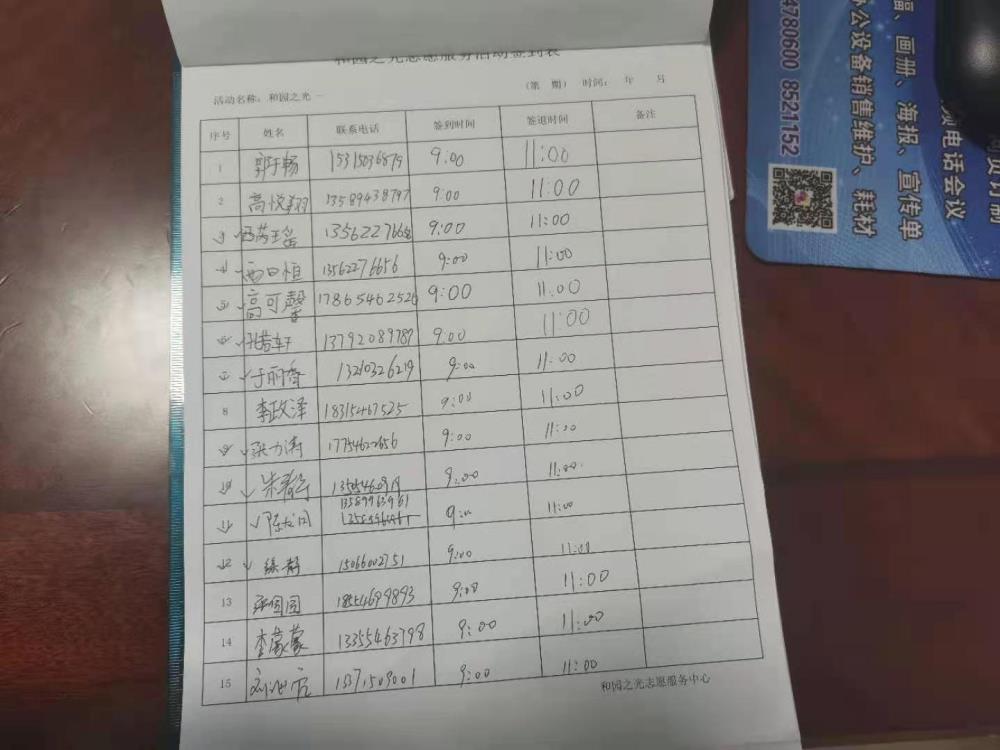 和园之光志愿服务活动签到表
活动名称：和园之光一
（第 期） 时间： 年 月
序号 姓名 联系电话 签到时间 签退时间 备注
1 郭于畅 15315036879 9:00 11:00
2 高悦翔 13589438797 9:00 11:00
3 9:00 11:00
4 13562276656 9:00 11:00
5 高可馨 17865462526 9:00 11:00
6 13792089787 9:00 11:00
7 于丽 13210326219 9:00 11:00
8 李政泽 18315467525 9:00 11:00
9 张力涛 9:00 11:00
10 朱 9:00 11:00
11 陈 13589963961 9:00 11:00
12 徐静 15066002751 9:00 11:00
13 张圆圆 18554699893 9:00 11:00
14 李蒙蒙 13355463798 9:00 11:00
15 刘 15371509001 9:00 11:00
和园之光志愿服务中心
4780600 8521152
办公设备销售维护、耗材
画册、海报、宣传单
频电话会议